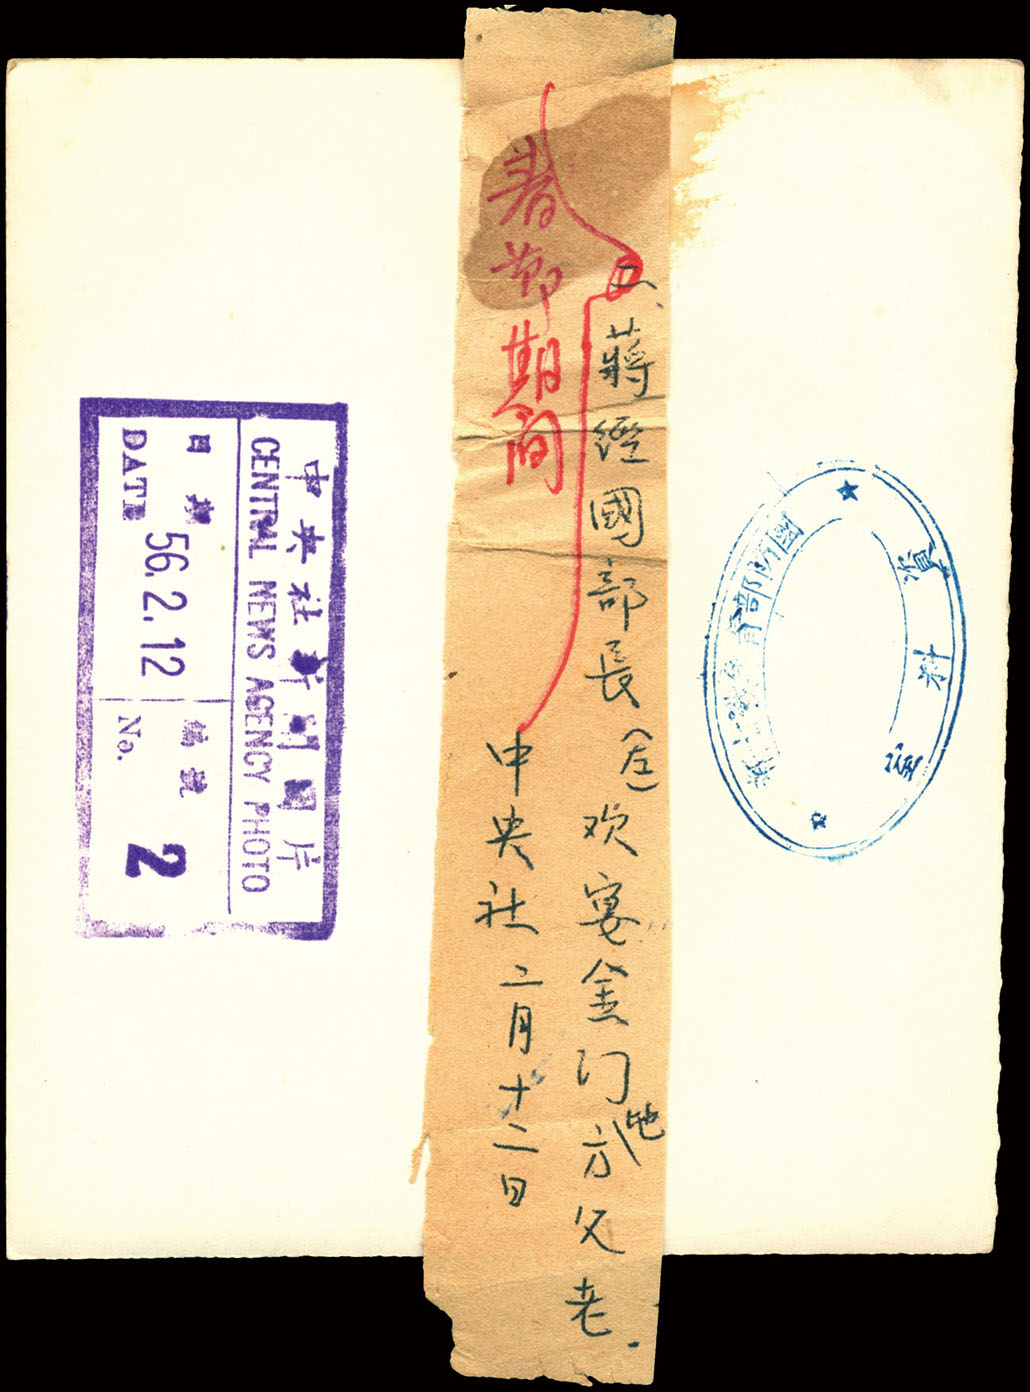 春節期间
二、蔣經國部長（左）欢宴金门地方父老.
中央社 二月十二日
中央社新聞圖片
CENTRAL NEWS AGENCY PHOTO
日期
DATE
56.2.12
編號
No.
2
資料室
國防部